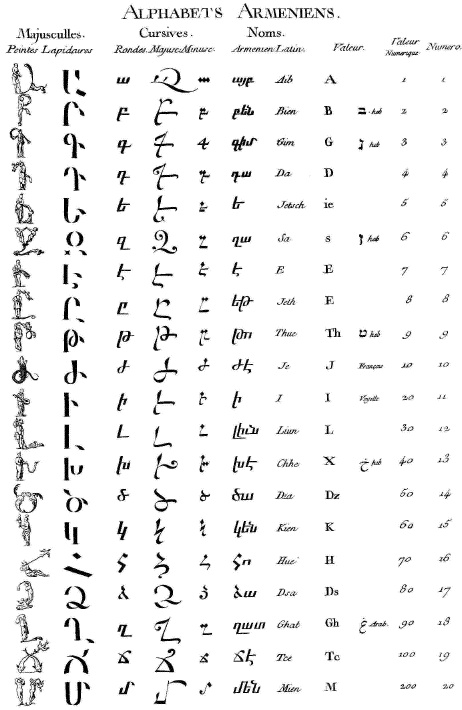 ALPHABETS ARMENIENS.
Majusculles. Cursives. Noms.
Peintes Lapidaires Rondes. Majusc. Minusc. Armenien Latin. Valeur. Valeur Numerique. Numero.
ա այբ Aib A 1 1
բ բեն Bien B ב heb 2 2
գ գիմ Gim G heb 3 3
դ դա Da D 4 4
ե ե Jetsch ie 5 5
զ զա Sa s heb 6 6
է է E E 7 7
ը եթ Jeth E 8 8
թ թո Thue Th ט heb 9 9
ժ ժէ Je J François 10 10
ի ի I I Voyelle 20 11
լ լիւն Liun L 30 12
խ խէ Chhe X heb 40 13
ծ ծա Dza Dz 50 14
կ կեն Kien K 60 15
հ հո Hue H 70 16
ձ ձա Dsa Ds 80 17
ղ ղատ Ghat Gh غ Arab. 90 18
ճ ճէ Tce Tc 100 19
մ մեն Mien M 200 20